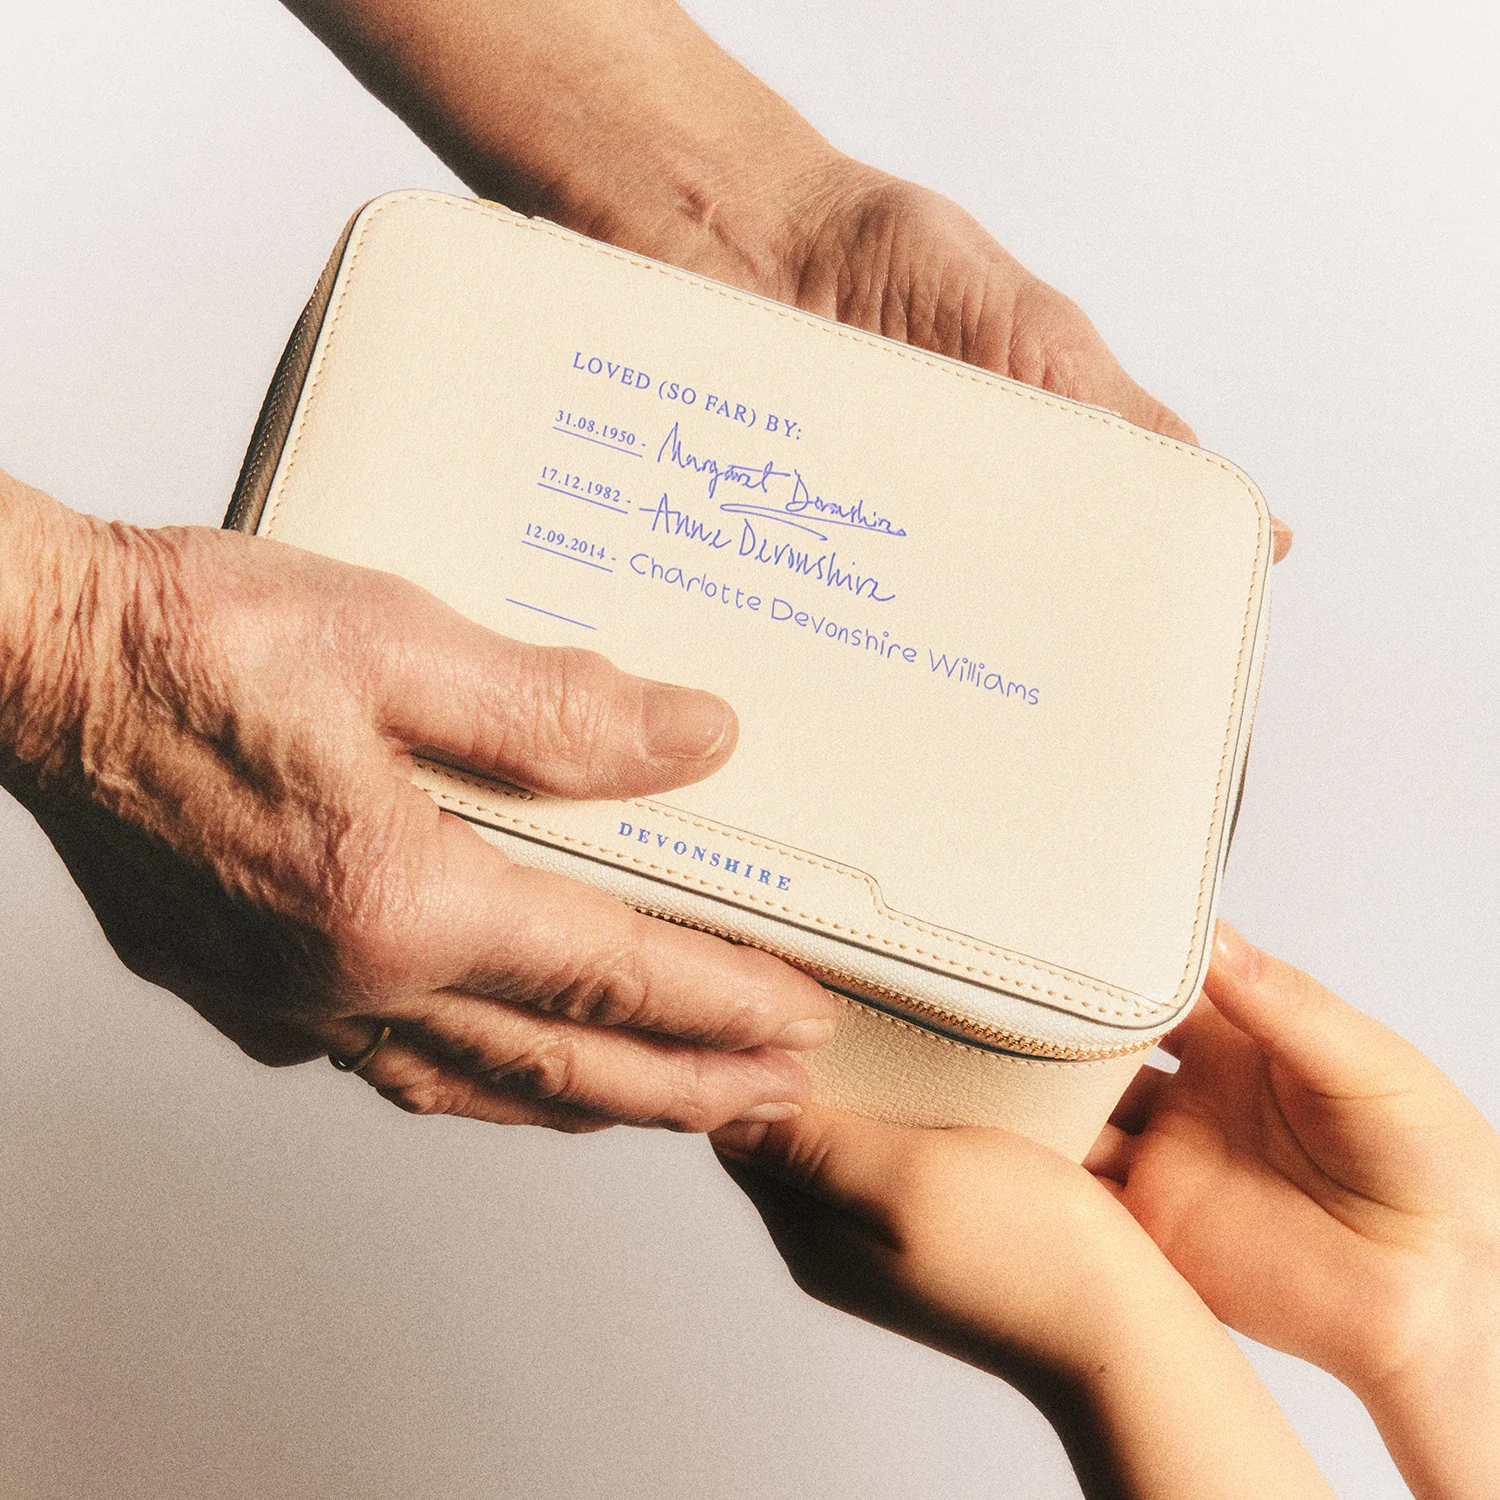 LOVED (SO FAR) BY:
31.08.1950 - Margaret Devonshire
17.12.1982 - Anne Devonshire
12.09.2014 - Charlotte Devonshire Williams
DEVONSHIRE